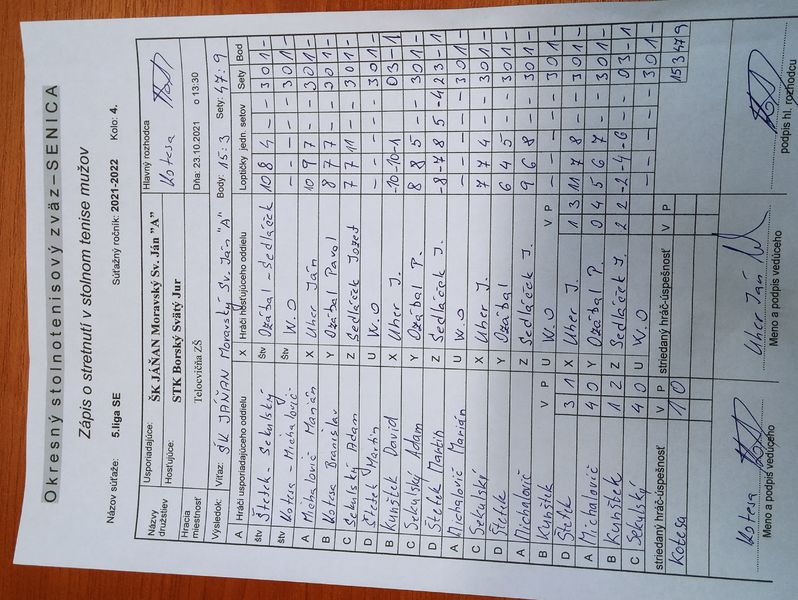 Okresný stolnotenisový zväz – SENICA
Zápis o stretnutí v stolnom tenise mužov
Názov súťaže: 5.liga SE Súťažný ročník: 2021-2022 Kolo: 4.
Názvy družstiev Usporiadajúce: ŠK JÁŇAN Moravský Sv. Ján "A" Hlavný rozhodca
Hosťujúce: STK Borský Svätý Jur Kotesa
Hracia miestnosť Telocvičňa ZŠ Dňa: 23.10.2021 o 13:30
Výsledok: Víťaz: ŠK JÁŇAN Moravský Sv. Ján "A" Body: 15:3 Sety: 47:9
A Hráči usporiadajúceho oddielu X Hráči hosťujúceho oddielu Loptičky jedn. setov Sety Bod
štv Štefek - Sekulský štv Ozábal - Sedláček 10 8 4 - - 3 0 1 -
štv Kotesa - Michalovič štv W.O - - - - - 3 0 1 -
A Michalovič Marián X Uher Ján 10 9 7 - - 3 0 1 -
B Kotesa Branislav Y Ozábal Pavol 8 7 7 - - 3 0 1 -
C Sekulský Adam Z Sedláček Jozef 7 7 11 - - 3 0 1 -
D Štefek Martin U W.O - - - - - 3 0 1 -
B Kunštek David X Uher J. -10 -10 -1 - - 0 3 - 1
C Sekulský Adam Y Ozábal P. 8 8 5 - - 3 0 1 -
D Štefek Martin Z Sedláček J. -8 -7 8 5 -4 2 3 - 1
A Michalovič Marián U W.O - - - - - 3 0 1 -
C Sekulský X Uher J. 7 7 4 - - 3 0 1 -
D Štefek Y Ozábal 6 4 5 - - 3 0 1 -
A Michalovič Z Sedláček J. 9 6 8 - - 3 0 1 -
B Kunštek V P U W.O V P - - - - - 3 0 1 -
D Štefek 3 1 X Uher J. 1 3 11 7 8 - - 3 0 1 -
A Michalovič 4 0 Y Ozábal P. 0 4 5 6 7 - - 3 0 1 -
B Kunštek 1 2 Z Sedláček J. 2 2 -2 -4 -6 - - 0 3 - 1
C Sekulský 4 0 U W.O - - - - - 3 0 1 -
striedaný hráč-úspešnosť V P striedaný hráč-úspešnosť V P 15 3 47 9
Kotesa 1 0
Kotesa Uher Ján
Meno a podpis vedúceho Meno a podpis vedúceho podpis hl. rozhodcu